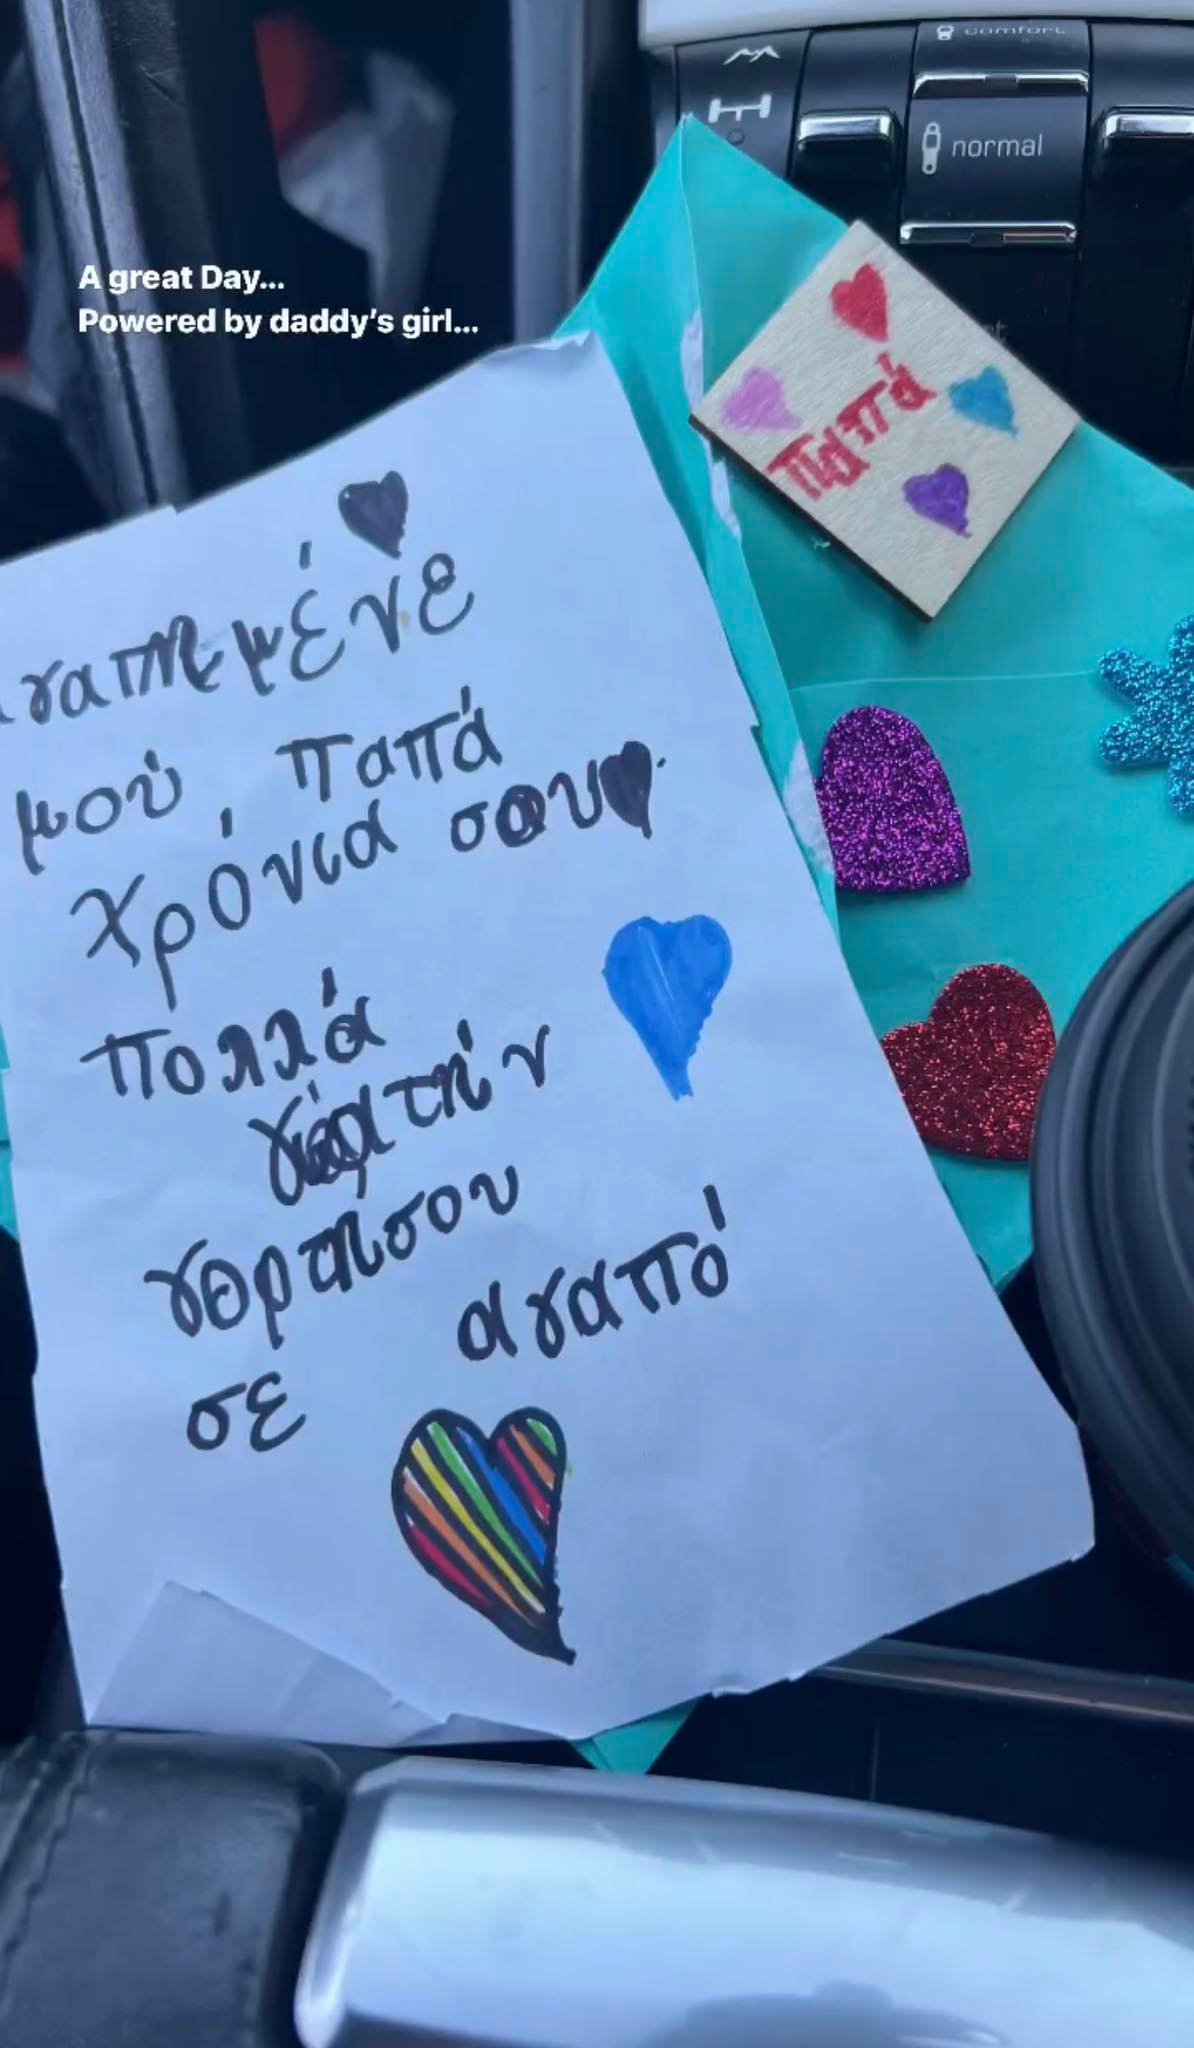 comfort
normal
A great Day...
Powered by daddy's girl...
παπά
αγαπημένε
μού παπά
χρόνια σου
πολλά
την
γορτήσου
αγαπό
σε